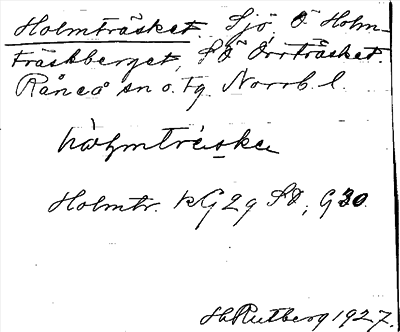 Holmträsket. Sjö, Ö Holm-
träskberget, SÖ Örrträsket.
Råneå sn o. tg. Norrb. l.
Holmtr. KG 2 g SO; G 30.
Hb Rutberg 1927.